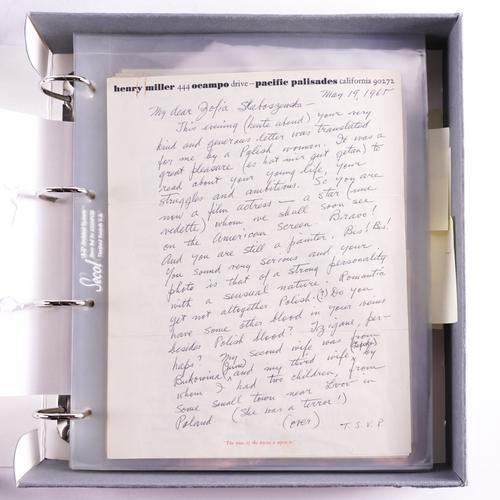 henry miller 444 ocampo drive — pacific palisades california 90272
May 19, 1965
My dear Zofia Słaboszewska —
This evening (heute abend) your very
kind and generous letter was translated
for me by a Polish woman. It was a
great pleasure (es hat mir gut getan) to
read about your young life, your
struggles and ambitions. So you are
now a film actress — a star (une
vedette) whom we shall soon see
on the American screen. Bravo!
And you are still a painter. Bis! Bis!
You sound very serious and your
photo is that of a strong personality
with a sensual nature. Romantic
yet not altogether Polish. (?) Do you
have some other blood in your veins
besides Polish blood? Tzigane, per-
haps? My second wife was from
Bukovina (June) and my third wife, by
whom I had two children, from
some small town near Lvov in
Poland (She was a terror!)
(over) T.S.V.P.
Secol